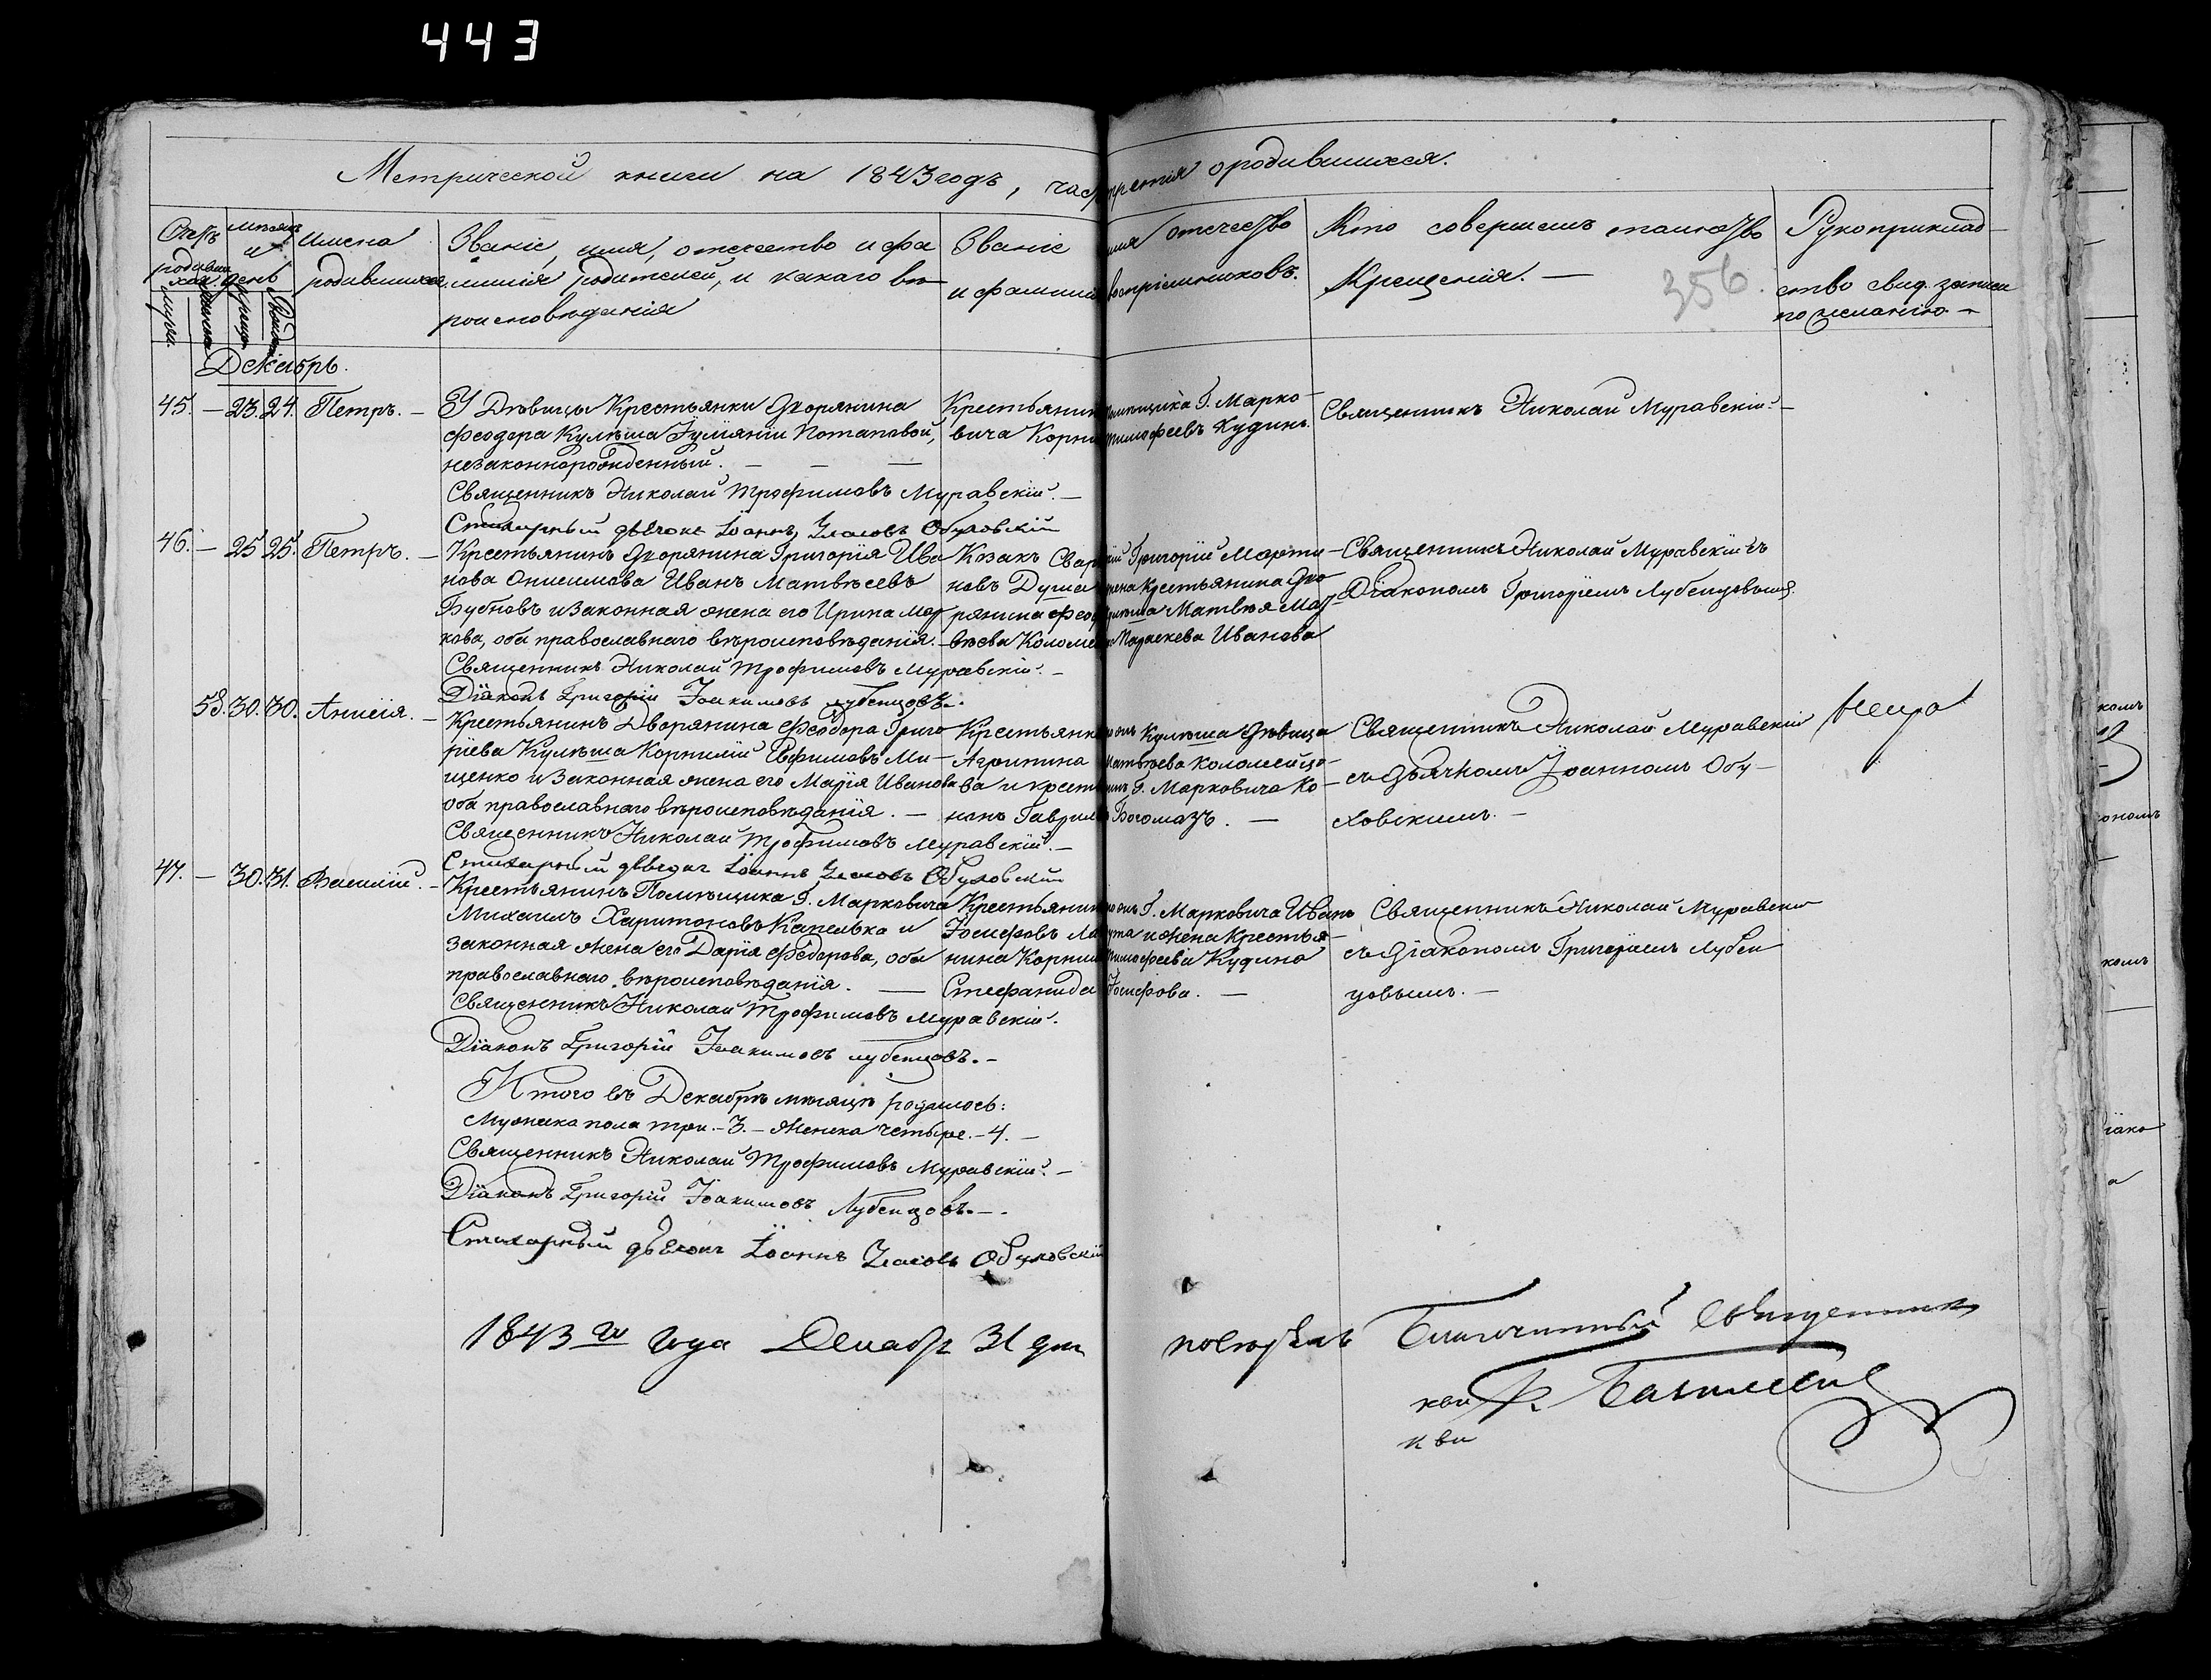 443
Метрической книги на 1843 годъ, часть первая о родившихся.
356
Счетъ родившихся
мужеска
женска
Мѣсяцъ и день
рожденія
крещенія
Имена родившихся
Званіе, имя, отчество и фа
милія родителей, и какого вѣ
роисповѣданія
Званіе имя отчество
и фамилія воспріемниковъ.
Кто совершалъ таинство
Крещенія. —
Рукоприклад-
ство свид. записи
по желанію. —
Декабрь.
45. — 23. 24. Петръ. —
У Дѣвицы Крестьянки Дворянина
Феодора Кулѣша Іуліяніи Потаповой,
незаконнорожденный. — — —
Крестьянинъ помѣщика Г. Марко-
вича Корнилій Тимофеевъ Кудинъ.
Священникъ Николай Муравскій. —
Священникъ Николай Трофимовъ Муравскій. —
Стихарный дьячокъ Іоаннъ Обуховскій
46. — 25 25. Петръ. —
Крестьянинъ Дворянина Григорія Ива
нова Онисимова Иванъ Матвѣевъ
Бубновъ и законная жена его Ирина Мар
кова, оба православнаго вѣроисповѣданія. —
Козакъ Григорій Марти-
новъ жена Крестьянина Дво
рянина Феодора Кулѣша Матвѣя Мат-
вѣева Параскева Иванова
Священникъ Николай Муравскій съ
Діакономъ Григоріемъ Лубенцовымъ.
Священникъ Николай Трофимовъ Муравскій. —
Діаконъ Григорій Іоакимовъ Лубенцовъ. —
53. 30. 30. Анисія. —
Крестьянинъ Дворянина Феодора Григо
ріева Кулѣша Корнилій Евфимовъ Ми-
щенко и законная жена его Марія Иванова
оба православнаго вѣроисповѣданія. —
Крестьянка Кулѣша Дѣвица
Агрипина Матвѣева Коломейцо-
ва и крестьянинъ Г. Марковича Ко-
Гавриловъ Богомазъ. —
Священникъ Николай Муравскій
съ Дьячкомъ Іоанномъ Обу-
ховскимъ. —
Священникъ Николай Трофимовъ Муравскій. —
Стихарный дьячокъ Іоаннъ Обуховскій
47. — 30. 31. Василій. —
Крестьянинъ Помѣщика Г. Марковича
Михаилъ Харитоновъ Капелька и
законная жена его Дарія Федорова, оба
православнаго вѣроисповѣданія. —
Крестьянинъ Г. Марковича Иванъ
Іосифовъ и жена Крестья-
нина Корнилія Тимофеева Кудина
Стефанида Іосифова. —
Священникъ Николай Муравскій
съ Діакономъ Григоріемъ Лубен
цовымъ. —
Священникъ Николай Трофимовъ Муравскій.
Діаконъ Григорій Іоакимовъ Лубенцовъ. —
Итого въ Декабрѣ мѣсяцѣ родилось:
Мужеска пола три. — 3. — Женска четыре. — 4. —
Священникъ Николай Трофимовъ Муравскій. —
Діаконъ Григорій Іоакимовъ Лубенцовъ. —
Стихарный дьячокъ Іоаннъ Обуховскій
1843 го года Декабр 31 дня
повѣрялъ Благочинный Священникъ